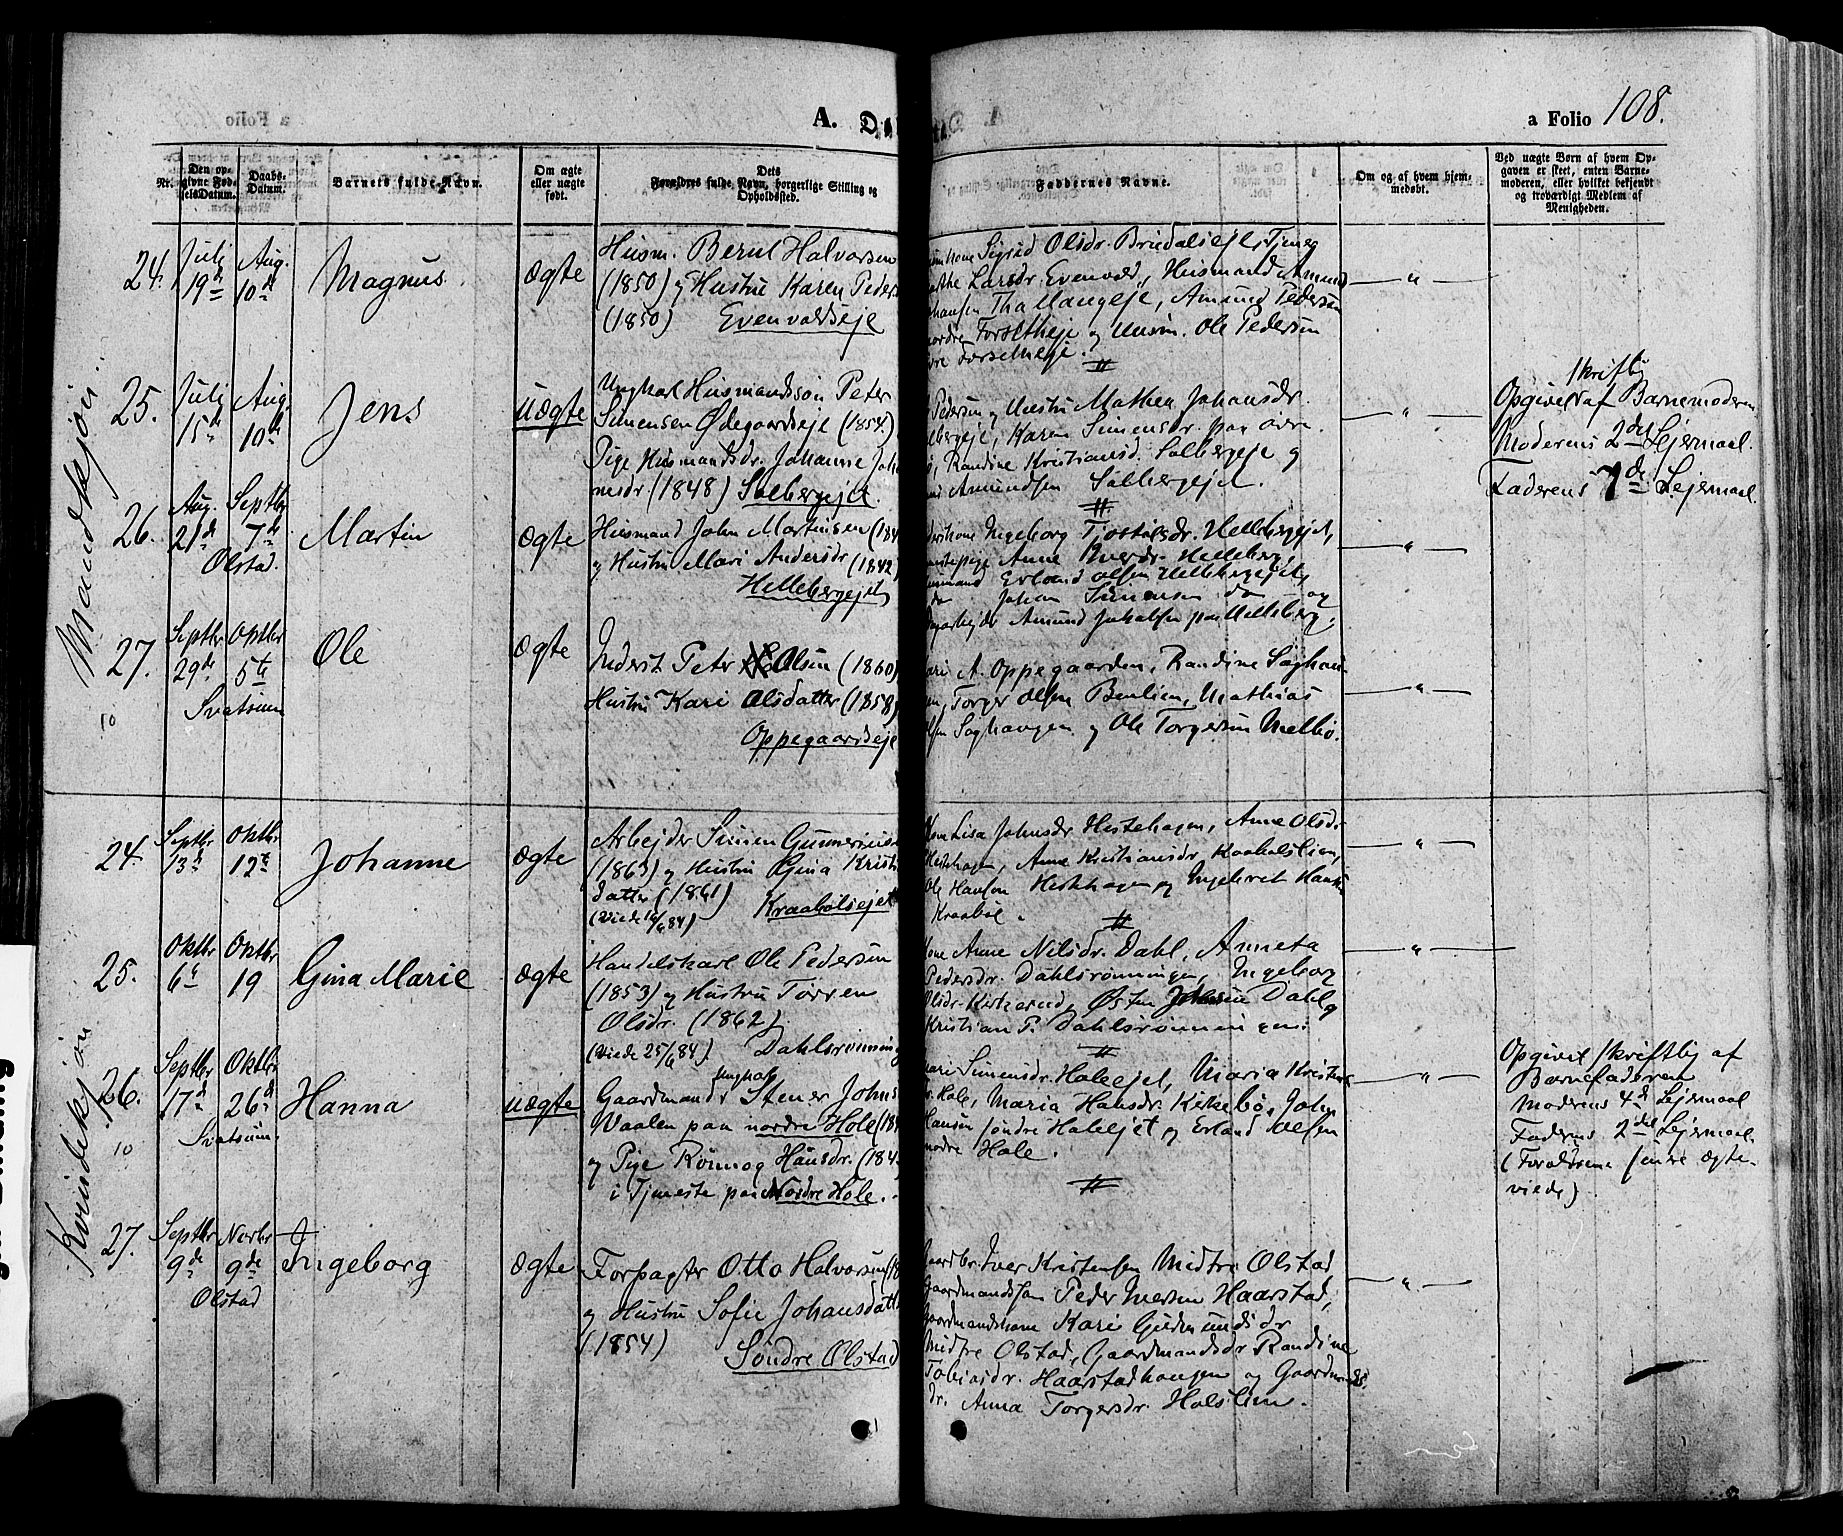 A. D
a Folio 108.
Nr.
Den opgivne FødselsDatum.
Daabs-Datum.
Barnets fulde Navn.
Om ægte eller uægte født.
Dets Forældres fulde Navn, borgerlige Stilling og Opholdssted.
Faddernes Navne.
Om og af hvem hjemmedøbt.
Ved uægte Børn af hvem Opgaven er skeet, enten Barnemoderen, eller hvilket bekjendt og troværdigt Medlem af Menigheden.
Mandkjøn.
24. Juli 19de Aug. 10de Magnus. Ægte
Husm. Bernt Halvorsen
(1850) og Hustru Karen Peders
(1850) Evenvoldseje
Sigrid Olsdr. Bredalseje, Tjeneg
Larsdr. Evenvold, Husmand Amund
Thallaugeje, Amund Pedersen
Forsetheje og Husm. Ole Pedersen
Forsetheje.
"
25. Juli 15de Aug. 10de Jens Uægte
Ungkarl Husmandssøn Peter
Simensen Ødegaardseje (1854)
Pige Husmandsdr. Johanne Joha
nesdr (1848) Solbergejet.
Pedersen og Hustru Mathea Johansdr.
Karen Simensdr. paa øvre
Randine Kristiansd. Solbergeje og
Amundsen Solbergejet.
"
skriftlig
Opgivet af Barnemoderen
Moderens 2det Lejermaal.
Faderens 7de Lejermaal.
26. Aug. 21de Septbr 7de Martin Ægte
Olstad.
Husmand John Martinsen (184
og Hustru Mari Andersdr (1842)
Hellebergejet
Ingeborg Tjostolsdr. Hellebergejet,
Anne Iversdr. Helleberg,
Erland Olsen Hellebergejet,
do Johan Simensen do og
Amund Johansen paa Helleberg.
"
27. Septbr 29de Oktbr 5te Ole Ægte
Svatsum
10
Inderst Peter Olsen (1860)
Hustru Kari Olsdatter (1858)
Oppegaardseje
A. Oppegaarden, Randine Saghau
Torger Olsen Benlien, Mathias
Saghaugen og Ole Torgersen Melbø.
"
Kvindekjøn
24. Septbr 13de Oktbr 12te Johanne Ægte
Arbejder Simen Gunnerius
(1863) og Hustru Gina Kristi
datter (1861)
(Viede 16/6 84) Kraabølsejet
Kone Lisa Johnsdr Hestehagen, Anne Olsdr
Hestehagen, Anne Kristiansdr Kraabølslien,
Ole Hansen Hestehagen og Ingeborg Hans
Kraabøl.
"
25. Oktbr 6te Oktbr 19 Gina Marie Ægte
Handelskarl Ole Pedersen
(1853) og Hustru Torren
Olsdr. (1862)
(Viede 25/6 84) Dahlsrønning
Kone Anne Nilsdr. Dahl, Anneta
Pedersdr. Dahlsrønningen, Ingeborg
Olsdr. Kirkerud, Østen Johnsen Dahl og
Kristian P. Dahlsrønningen.
"
26. Septbr 17de Oktbr 26de Hanna Uægte
Svatsum.
10
Ungkarl
Gaardmand Stener Johns
Vaalen paa nordre Hole (184
og Pige Rønnog Hansdr. (184
i Tjeneste paa Nordre Hole.
Mari Simensdr. Holeejet, Maria Kristens
Hole, Maria Hansdr. Kirkebø, John
Hansen søndre Holeejet og Erland Olsen
nordre Hole.
"
Opgivet skriftlig af
Barnefaderen
Moderens 4de Lejermaal
Faderens 2det Lejermaal
(Forældrene senere ægte-
viede)
27. Septbr 9de Novbr 9de Ingeborg Ægte
Olstad
Forpagter Otto Halvorsen (18
og Hustru Sofie Johansdatt
(1854)
Søndre Olstad
Gaardbr. Iver Kristensen Midtre Olstad
Gaardmandssøn Peder Iversen Haarstad,
Gaardmandskone Kari Gudmundsdr
Midtre Olstad, Gaardmandsdr Randine
Tobiasdr. Haarstadhaugen og Gaardmands
dr. Anna Torgersdr. Holslien.
"